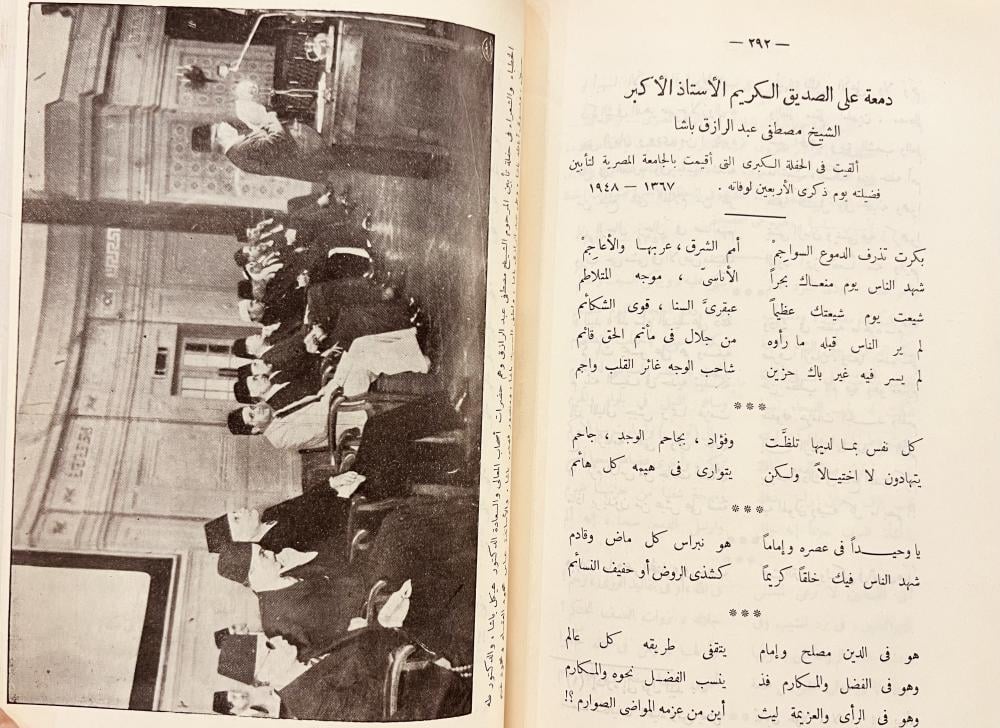 — ٢٩٢ —
دمعة على الصديق الكريم الأستاذ الأكبر
الشيخ مصطفى عبد الرازق باشا
ألقيت فى الحفلة الكبرى التى أقيمت بالجامعة المصرية لتأبين
فضيلته يوم ذكرى الأربعين لوفاته . ١٣٦٧ — ١٩٤٨
بكرت تذرف الدموع السواجمْ أمم الشرق ، عربها والأعاجمْ
شهد الناس يوم منعاك بحراً الأناسىّ ، موجه المتلاطم
شيعت يوم شيعتك عظيماً عبقرىَّ السنا ، قوى الشكائم
لم ير الناس قبله ما رأوه من جلال فى مأتم الحق قائم
لم يسر فيه غير باك حزين شاحب الوجه غائر القلب واجم
***
كل نفس بما لديها تلظَّت وفؤاد ، بجاحم الوجد ، جاحم
يتهادون لا اختيالاً ولكن يتوارى فى هيمه كل هائم
***
يا وحيداً فى عصره وإماماً هو نبراس كل ماض وقادم
شهد الناس فيك خلقاً كريماً كشذى الروض أو حفيف النسائم
***
هو فى الدين مصلح وإمام يتقفى طريقه كل عالم
وهو فى الفضل والمكارم فذ ينسب الفضل نحوه والمكارم
وهو فى الرأى والعزيمة ليث أين من عزمه المواضى الصوارم ؟!
الخطباء والشعراء فى حفلة تأبين المرحوم الشيخ مصطفى عبد الرازق وهم حضرات أصحاب المعالى والسعادة الدكتور هيكل باشا ، والدكتور طه